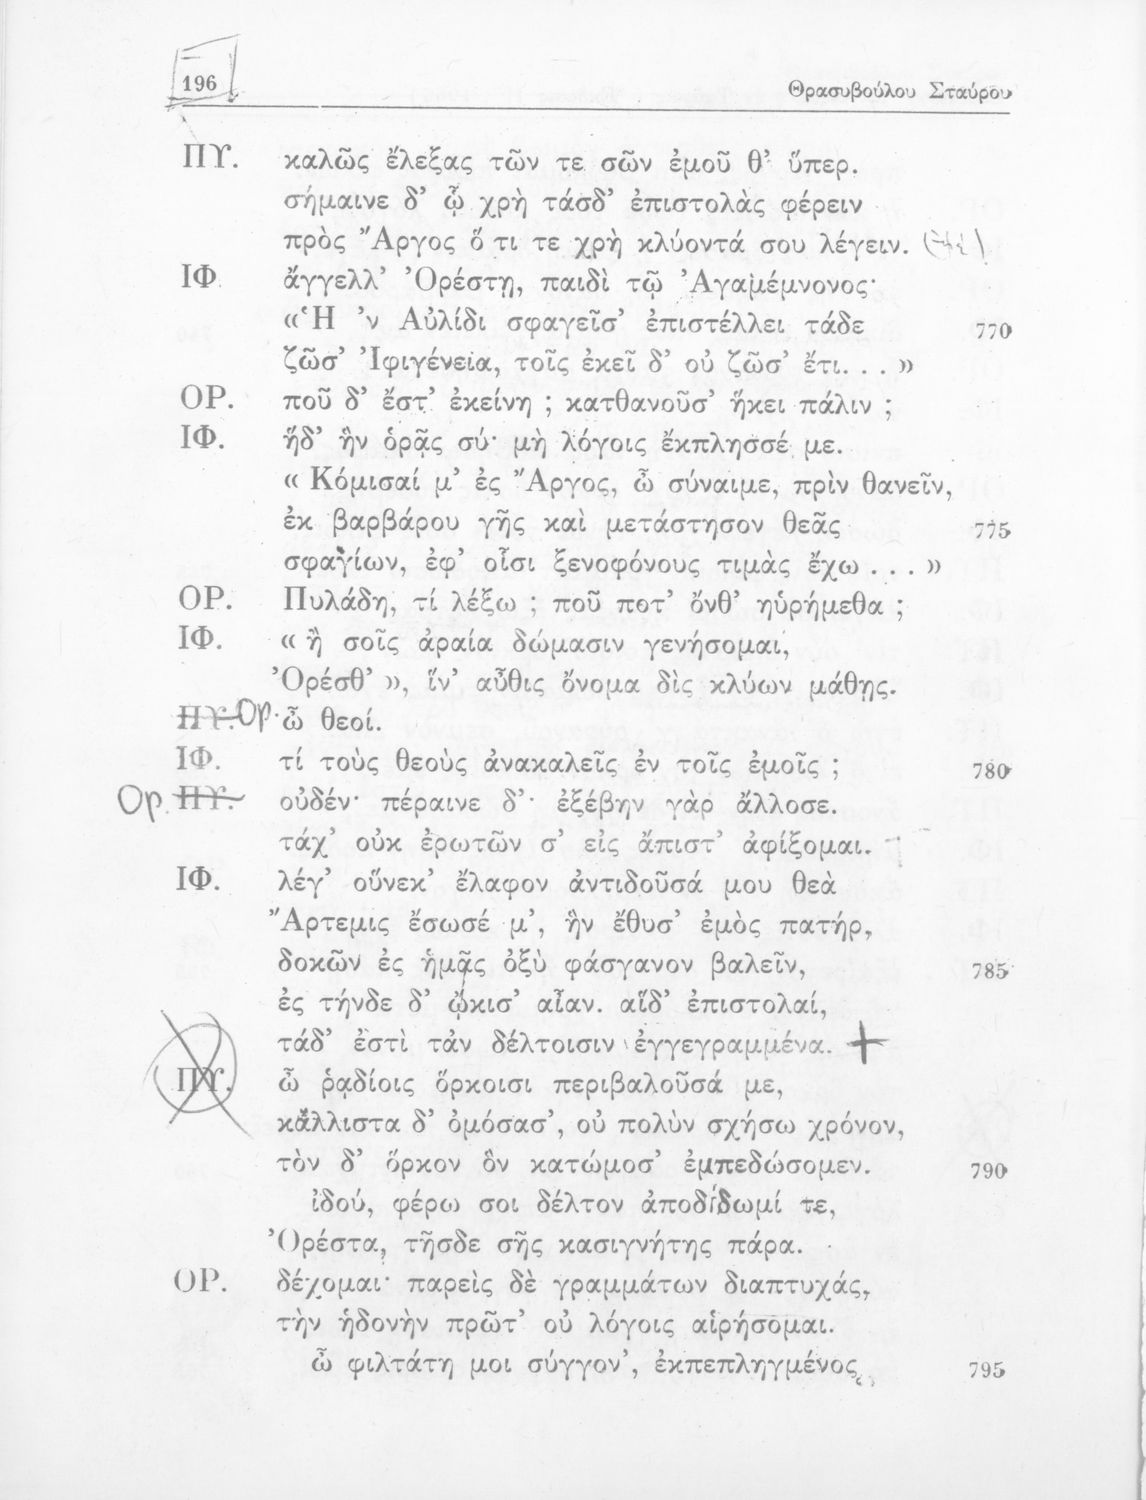 196 Θρασυβούλου Σταύρου
ΠΥ. καλῶς ἔλεξας τῶν τε σῶν ἐμοῦ θ’ ὕπερ.
σήμαινε δ’ ᾧ χρὴ τάσδ’ ἐπιστολὰς φέρειν
πρὸς Ἄργος ὅ τι τε χρὴ κλύοντά σου λέγειν.
ΙΦ. ἄγγελλ’ Ὀρέστῃ, παιδὶ τῷ Ἀγαμέμνονος·
«Ἡ ’ν Αὐλίδι σφαγεῖσ’ ἐπιστέλλει τάδε 770
ζῶσ’ Ἰφιγένεια, τοῖς ἐκεῖ δ’ οὐ ζῶσ’ ἔτι. . . »
ΟΡ. ποῦ δ’ ἔστ’ ἐκείνη ; κατθανοῦσ’ ἥκει πάλιν ;
ΙΦ. ἥδ’ ἣν ὁρᾷς σύ· μὴ λόγοις ἔκπλησσέ με.
« Κόμισαί μ’ ἐς Ἄργος, ὦ σύναιμε, πρὶν θανεῖν,
ἐκ βαρβάρου γῆς καὶ μετάστησον θεᾶς 775
σφαγίων, ἐφ’ οἷσι ξενοφόνους τιμὰς ἔχω . . . »
ΟΡ. Πυλάδη, τί λέξω ; ποῦ ποτ’ ὄνθ’ ηὑρήμεθα ;
ΙΦ. « ἢ σοῖς ἀραία δώμασιν γενήσομαι,
Ὀρέσθ’ », ἵν’ αὖθις ὄνομα δὶς κλύων μάθῃς.
ΠΥ. Ορ. ὦ θεοί.
ΙΦ. τί τοὺς θεοὺς ἀνακαλεῖς ἐν τοῖς ἐμοῖς ; 780
Ορ. ΠΥ. οὐδέν· πέραινε δ’· ἐξέβην γὰρ ἄλλοσε.
τάχ’ οὐκ ἐρωτῶν σ’ εἰς ἄπιστ’ ἀφίξομαι.
ΙΦ. λέγ’ οὕνεκ’ ἔλαφον ἀντιδοῦσά μου θεὰ
Ἄρτεμις ἔσωσέ μ’, ἣν ἔθυσ’ ἐμὸς πατήρ,
δοκῶν ἐς ἡμᾶς ὀξὺ φάσγανον βαλεῖν, 785
ἐς τήνδε δ’ ᾤκισ’ αἶαν. αἵδ’ ἐπιστολαί,
τάδ’ ἐστὶ τἀν δέλτοισιν ἐγγεγραμμένα. +
ΠΥ. ὦ ῥᾳδίοις ὅρκοισι περιβαλοῦσά με,
κάλλιστα δ’ ὀμόσασ’, οὐ πολὺν σχήσω χρόνον,
τὸν δ’ ὅρκον ὃν κατώμοσ’ ἐμπεδώσομεν. 790
ἰδού, φέρω σοι δέλτον ἀποδίδωμί τε,
Ὀρέστα, τῆσδε σῆς κασιγνήτης πάρα.
ΟΡ. δέχομαι· παρεὶς δὲ γραμμάτων διαπτυχάς,
τὴν ἡδονὴν πρῶτ’ οὐ λόγοις αἱρήσομαι.
ὦ φιλτάτη μοι σύγγον’, ἐκπεπληγμένος 795